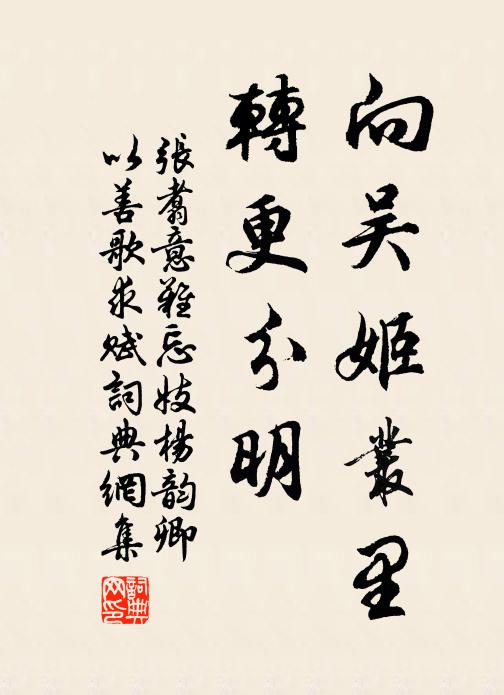 向吴姬叢里
轉更分明
張翥意難忘妓楊韵卿
以善歌求赋詞典網集
詞典
网印